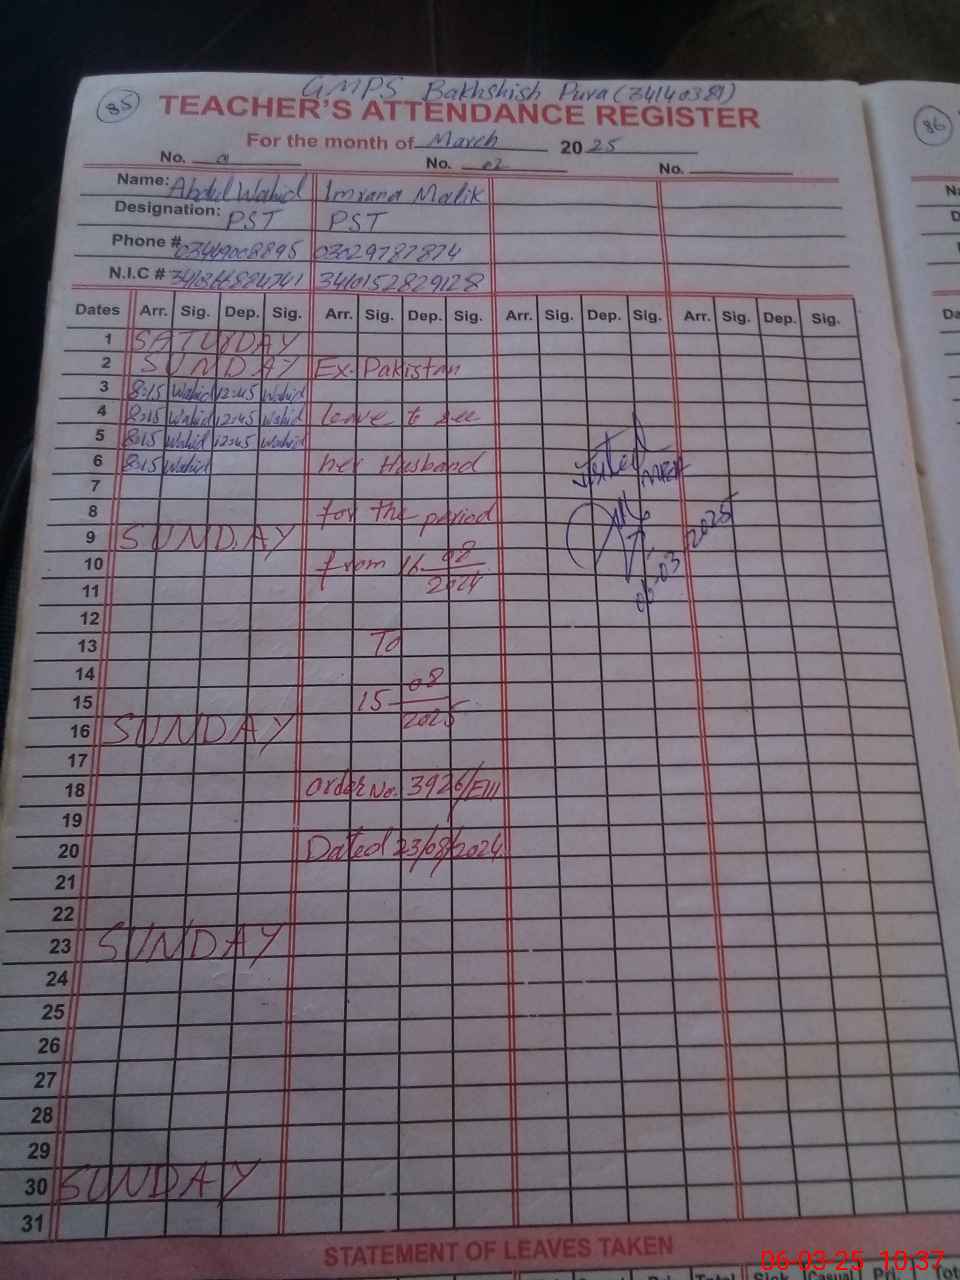 GMPS Bakhshish Pura (34140381)
85
TEACHER'S ATTENDANCE REGISTER
86
For the month of March 2025
No. 01 No. 02 No.
Name: Abdul Wahid Imrana Malik
Designation: PST PST
Phone # 03449008895 03029787874
N.I.C # 3410152829128
Dates Arr. Sig. Dep. Sig. Arr. Sig. Dep. Sig. Arr. Sig. Dep. Sig. Arr. Sig. Dep. Sig.
1 SATURDAY
2 SUNDAY Ex-Pakistan
3 8:15 Wahid 12:45 Wahid
4 8:15 Wahid 12:45 Wahid leave to see
5 8:15 Wahid 12:45 Wahid
6 8:15 Wahid her Husband
7
8 for the period
9 SUNDAY
10 from 16-08
11 2024
12
13 To
14 08
15 15 2025
16 SUNDAY
17
18 order No. 3926/EIII
19
20 Dated 23/08/2024
21
22
23 SUNDAY
24
25
26
27
28
29
30 SUNDAY
31
06-03-2025
STATEMENT OF LEAVES TAKEN
06-03-25 10:37